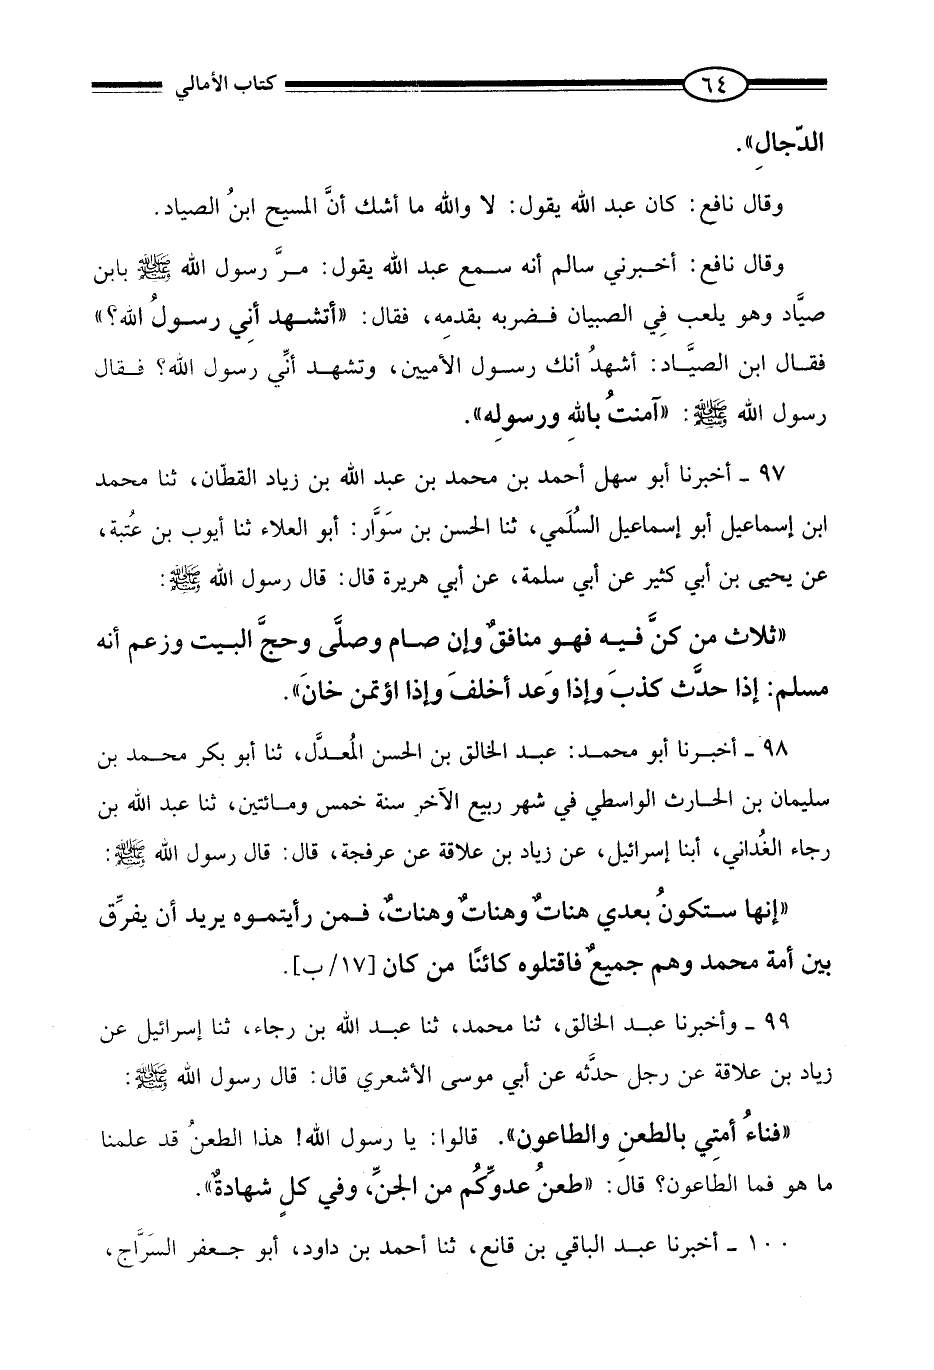 ٦٤ كتاب الأمالي
الدّجالِ».
وقال نافع: كان عبد الله يقول: لا والله ما أشك أنَّ المسيح ابنُ الصياد.
وقال نافع: أخبرني سالم أنه سمع عبد الله يقول: مرَّ رسول الله ﷺ بابن
صيَّاد وهو يلعب في الصبيان فضربه بقدمِه، فقال: «أتشهد أنِي رسولُ الله؟»
فقال ابن الصيَّاد: أشهدُ أنك رسول الأميين، وتشهد أنِّي رسول الله؟ فقال
رسول الله ﷺ: «آمنتُ باللهِ ورسولِه».
٩٧ ـ أخبرنا أبو سهل أحمد بن محمد بن عبد الله بن زياد القطّان، ثنا محمد
ابن إسماعيل أبو إسماعيل السُلَمي، ثنا الحسن بن سَوَّار: أبو العلاء ثنا أيوب بن عُتبة،
عن يحيى بن أبي كثير عن أبي سلمة، عن أبي هريرة قال: قال رسول الله ﷺ:
«ثلاث من كنَّ فيه فهو منافقٌ وإن صام وصلَّى وحجَّ البيت وزعم أنه
مسلم: إذا حدَّث كذبَ وإذا وَعد أخلفَ وإذا اؤتمن خانَ».
٩٨ ـ أخبرنا أبو محمد: عبد الخالق بن الحسن المُعدَّل، ثنا أبو بكر محمد بن
سليمان بن الحارث الواسطي في شهر ربيع الآخر سنة خمس ومائتين، ثنا عبد الله بن
رجاء الغُداني، أبنا إسرائيل، عن زياد بن علاقة عن عرفجة، قال: قال رسول الله ﷺ:
«إنها ستكونُ بعدي هناتٌ وهناتٌ وهناتٌ، فمن رأيتموه يريد أن يفرِّق
بين أمة محمد وهم جميعٌ فاقتلوه كائنًا من كان [١٧/ب].
٩٩ ـ وأخبرنا عبد الخالق، ثنا محمد، ثنا عبد الله بن رجاء، ثنا إسرائيل عن
زياد بن علاقة عن رجل حدَّثه عن أبي موسى الأشعري قال: قال رسول الله ﷺ:
«فناءُ أمتِي بالطعنِ والطاعون». قالوا: يا رسول الله! هذا الطعنُ قد علمنا
ما هو فما الطاعون؟ قال: «طعنُ عدوِّكُم من الجنِّ، وفي كلٍ شهادةٌ».
١٠٠ ـ أخبرنا عبد الباقي بن قانع، ثنا أحمد بن داود، أبو جعفر السَرَّاج،